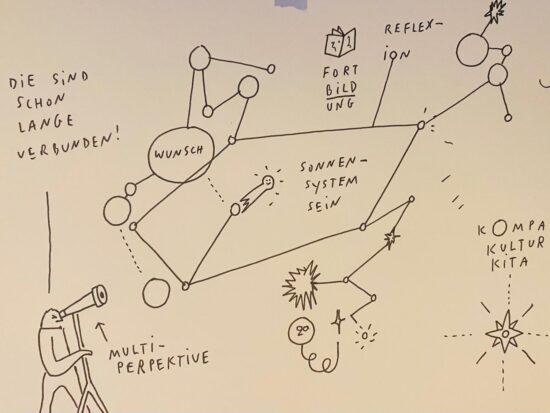 DIE SIND
SCHON
LANGE
VERBUNDEN!
WUNSCH
FORT
BILD
UNG
REFLEX-
ION
SONNEN-
SYSTEM
SEIN
KOMPA
KULTUR
KITA
MULTI-
PERPEKTIVE